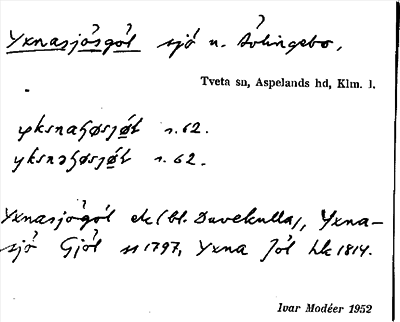 Yxnasjösgöl sjö n. Àvlingebo.
Tveta sn, Aspelands hd, Klm. l.
yksnaʃøsjø̱l s.62.
yksnəʃøsjø̱l s.62.
Yxnasjögöl ek (bl. Duvekulla), Yxna-
sjö Gjöl sn 1797, Yxna Jöl hk 1814.
Ivar Modéer 1952